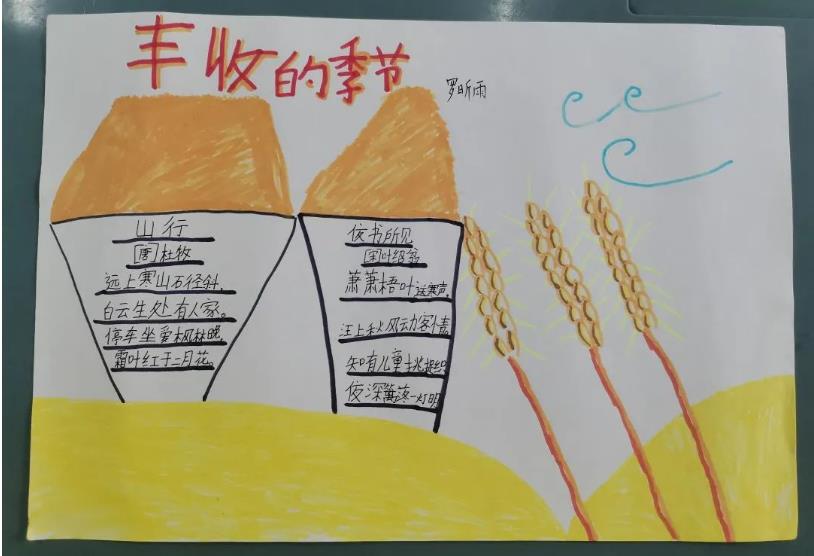 丰收的季节
罗昕雨
山行
[唐]杜牧
远上寒山石径斜,
白云生处有人家。
停车坐爱枫林晚,
霜叶红于二月花。
夜书所见
[宋]叶绍翁
萧萧梧叶送寒声,
江上秋风动客情。
知有儿童挑促织
夜深篱落一灯明